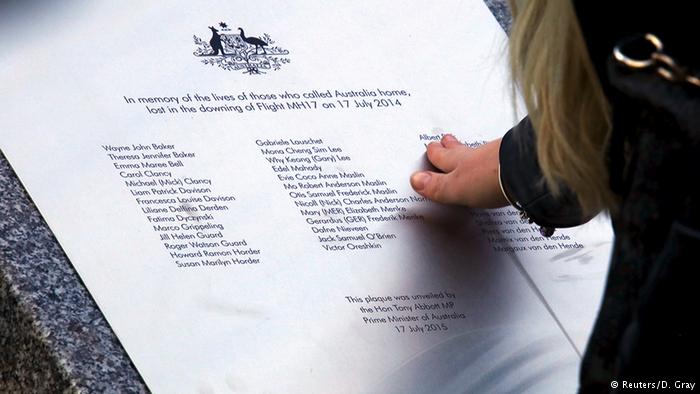 In memory of the lives of those who called Australia home,
lost in the downing of Flight MH17 on 17 July 2014
Wayne John Baker
Theresa Jennifer Baker
Emma Maree Bell
Carol Clancy
Michael (Mick) Clancy
Liam Patrick Davison
Francesca Louise Davison
Liliane Delfina Derden
Fatima Dyczynski
Marco Grippeling
Jill Helen Guard
Roger Watson Guard
Howard Ramon Horder
Susan Marilyn Horder
Gabriele Lauschet
Mona Cheng Sim Lee
Why Keong (Gary) Lee
Edel Mahady
Evie Coco Anne Maslin
Mo Robert Anderson Maslin
Otis Samuel Frederick Maslin
Nicoll (Nick) Charles Anderson
Mary (MER) Elizabeth Menke
Gerardus (GER) Frederik Menke
Dafne Nieveen
Jack Samuel O'Brien
Victor Oreshkin
Albert
van den
van den
van den Hende
Marnix van den Hende
Margaux van den Hende
This plaque was unveiled by
the Hon Tony Abbott MP
Prime Minister of Australia
17 July 2015
© Reuters/D. Gray